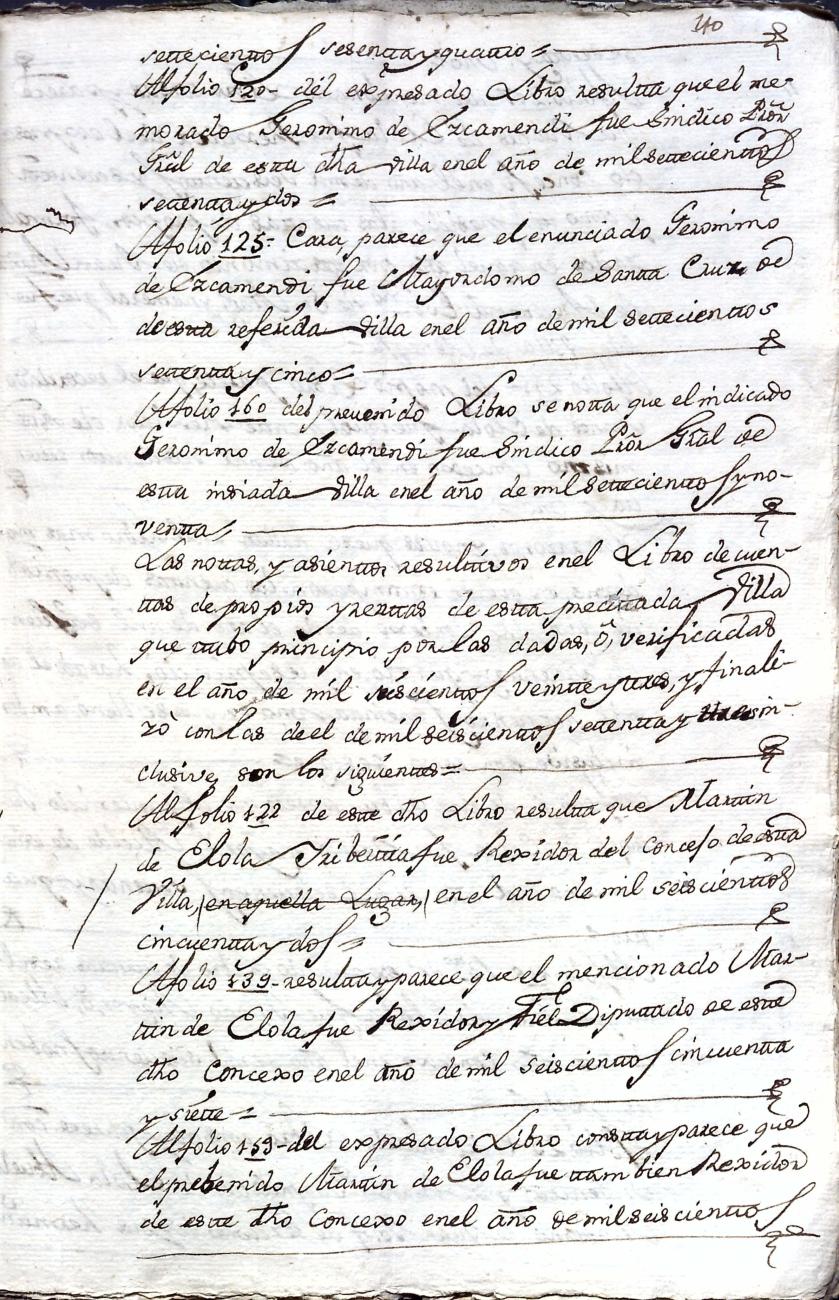 40
settecientos sesentta y quattro =
Al folio 120 - del expresado Libro resultta que el me-
morado Geronimo de Yzcamendi fue Sindico Prõr
Grãl de estta dha Villa en el año de mil settecienttos
settentta y dos =
Al folio 125 = Cara, parece que el enunciado Geronimo
de Yzcamendi fue Mayordomo de Santta Cruz de
de estta referida Villa en el año de mil settecienttos
settentta y cinco =
Al folio 160 del prevenido Libro se notta que el indicado
Geronimo de Yzcamendi fue Sindico Prõr Grãl de
estta insiada Villa en el año de mil settecienttos y no-
ventta =
Las nottas, y asienttos resulttivos en el Libro de cuen-
ttas de propios y renttas de estta precittada Villa
que ttubo principio por las dadas, ô, verificadas
en el año de mil seiscienttos veintte y ttres, y finali-
zó con las de el de mil seiscienttos settentta y ttres in-
clusive, son los siguienttes =
Al folio 122 de estte dho Libro resultta que Marttin
de Elola Yribettia fue Rexidor del Concejo de estta
Villa, en aquella Lugar, en el año de mil seiscienttos
cincuentta y dos =
Al folio 139 - resultta y parece que el mencionado Mar-
ttin de Elola fue Rexidor y Fiel Diputtado de estte
dho Concexo en el año de mil seiscienttos cincuentta
y siette =
Al folio 159 - del expresado Libro constta y parece que
el prebenido Marttin de Elola fue ttambien Rexidor
de estte dho Concexo en el año de mil seiscienttos